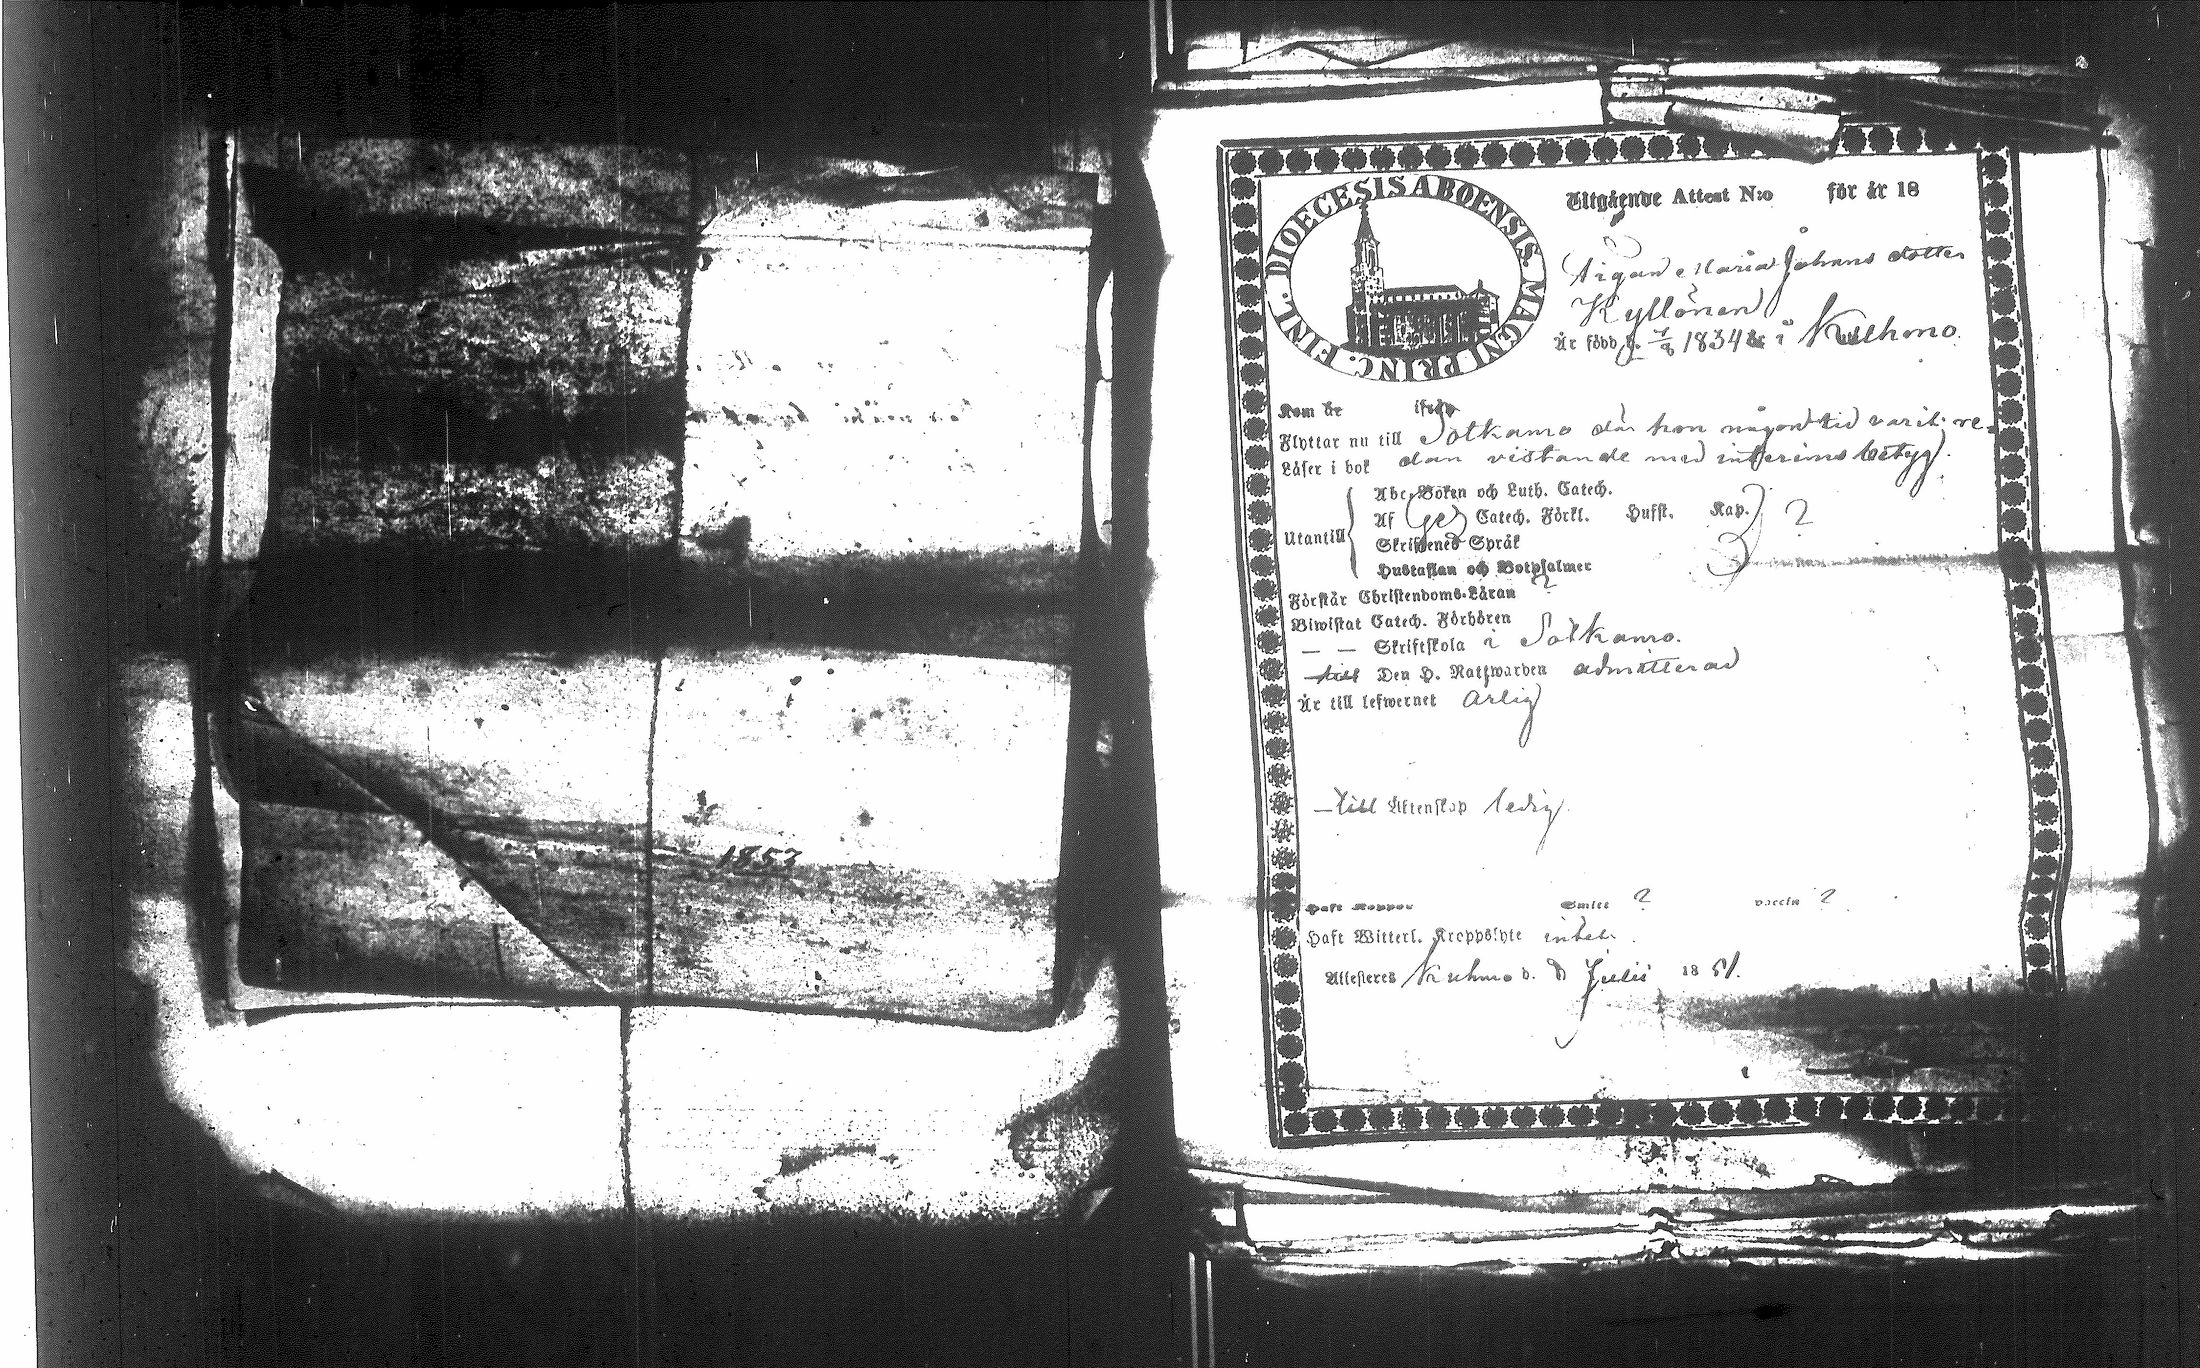 1853
DIOECESIS ABOENSIS. MAGNI PRINC. FINL.
Utgående Attest N:o för år 18
Pigan Maria Johans dotter
Kyllönen
Är född d. 7/8 1834 i Kuhmo
Kom år ifrån
Flyttar nu till Sotkamo där hon någon tid varit re-
Läser i bok dan vistande med interims betyg.
Utantill
Abc-Boken och Luth. Catech.
Af Catech. Förkl. Hufst. Kap. ?
Skriftenes Språk
Hustaflan och Botpsalmer
Förstår Christendoms-Läran ?
Biwistat Catech. Förhören
— — Skriftskola i Sotkamo.
— till Den H. Nattwarden admitterad
Är till lefwernet ärlig
— till Äktenskap ledig.
Haft Koppor Smitt ? vaccin ?
Haft Witterl. Kroppslyte
Attesteras Kuhmo d. 8 Julii 1851.